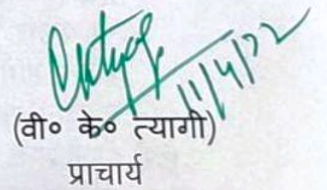 11/4/22
(वी० के० त्यागी)
प्राचार्य